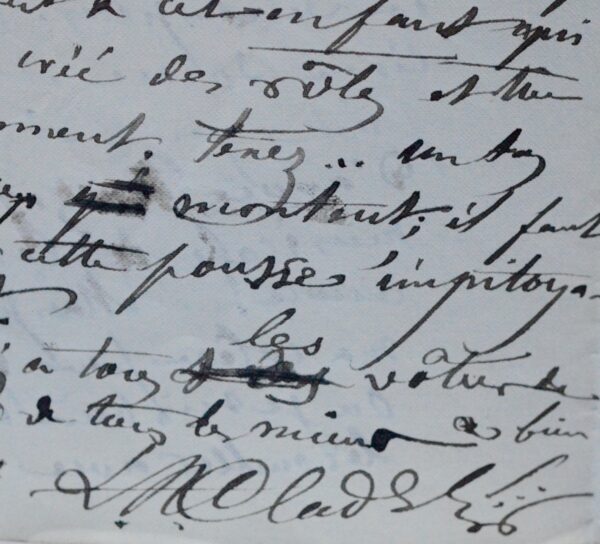 à cet enfant qui
créé des rôles et
ment. tenez... un
montent; il faut
cette pousse impitoya-
les
à tous vôtres de
de tous les miens à bien